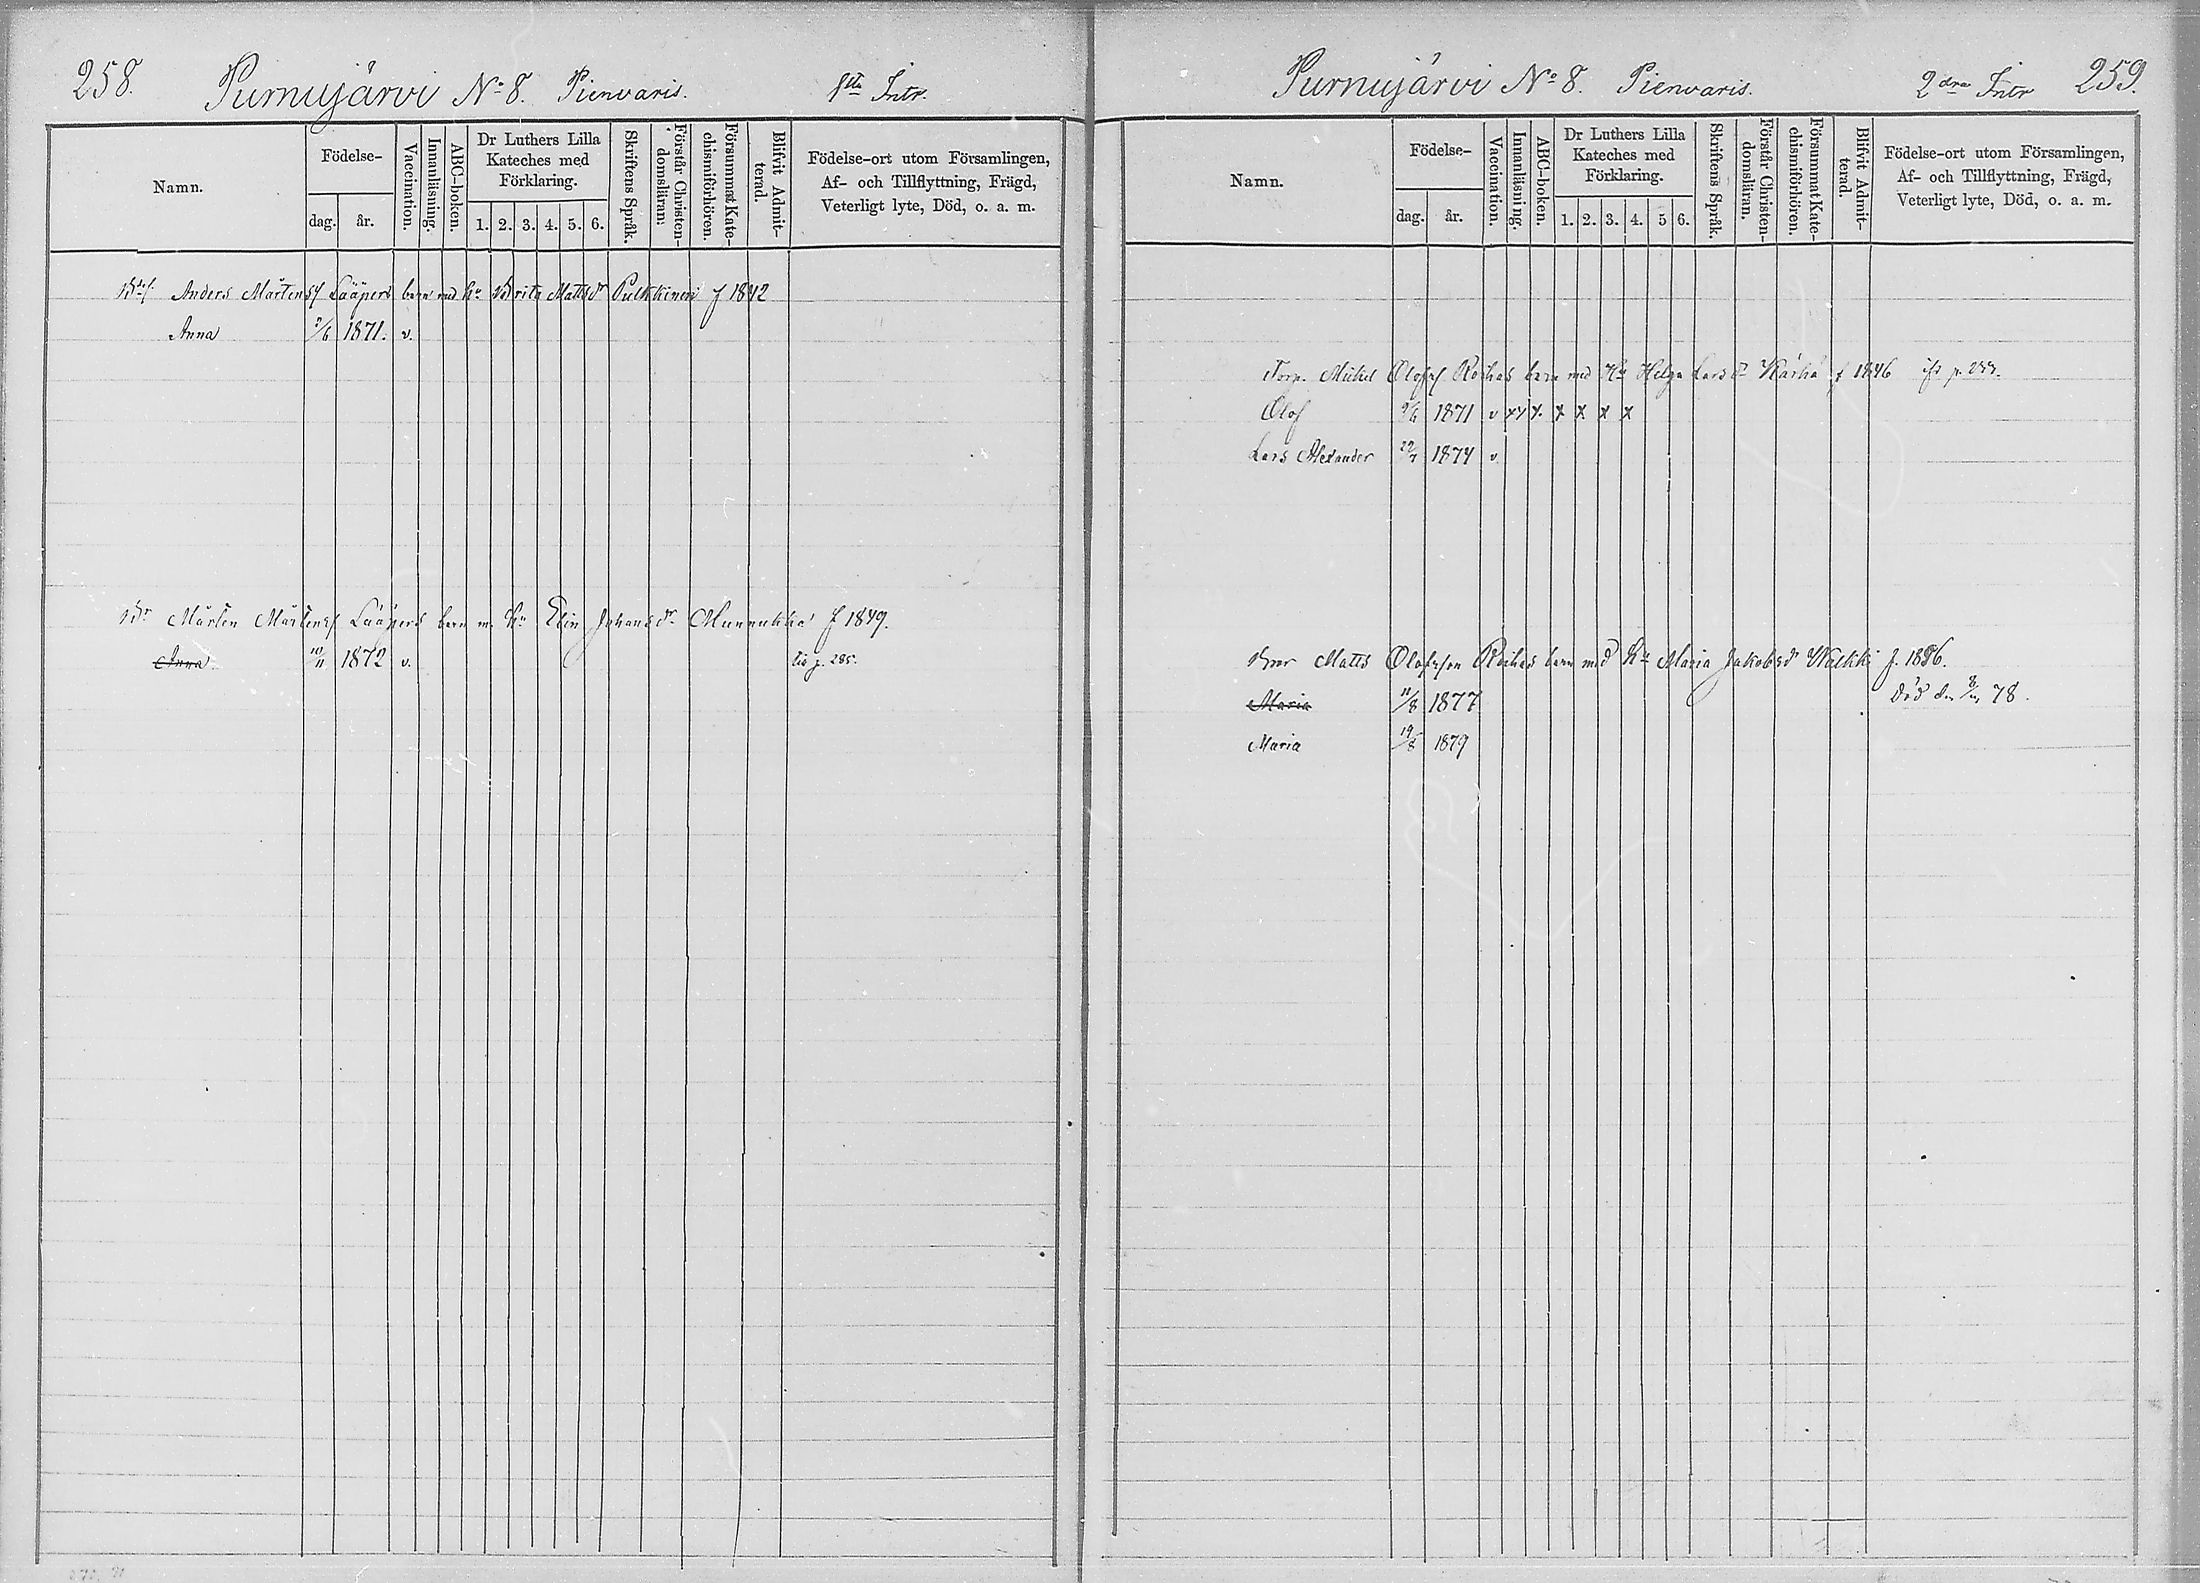 258. Purnujärvi No 8. Pienvaris. 1sta Intr.
Namn.
Födelse-
dag. år.
Vaccination.
Innanläsning.
ABC-boken.
Dr Luthers Lilla Kateches med Förklaring.
1. 2. 3. 4. 5. 6.
Skriftens Språk.
Förstår Christendomsläran.
Försummat Katechismiförhören.
Blifvit Admitterad.
Födelse-ort utom Församlingen, Af- och Tillflyttning, Frägd, Veterligt lyte, Död, o. a. m.
Anders Mårtensf Lääperi barn med hu Brita Mattsdr Pulkkinen f 1842
Anna 1871. v.
Br Mårten Mårtensf Lääperi barn m. hu Elin Johansdr Munnukka f 1849.
Anna 10/11 1872 v. tis p. 285.
Purnujärvi No 8. Pienvaris. 2dra Intr 259.
Namn.
Födelse-
dag. år.
Vaccination.
Innanläsning.
ABC-boken.
Dr Luthers Lilla Kateches med Förklaring.
1. 2. 3. 4. 5 6.
Skriftens Språk.
Förstår Christendomsläran.
Försummat Katechismiförhören.
Blifvit Admitterad.
Födelse-ort utom Församlingen, Af- och Tillflyttning, Frägd, Veterligt lyte, Död, o. a. m.
Torp. Mickel Olofsf Roihas barn med Hu Helga Larsdr Kärhä f 1846
Olof 1871 v x x x x x x x
Lars Alexander 1874 v
Matts Olofsson Roihas barn med Hu Maria Jakobsdr Walkki f. 1856.
Maria 11/8 1877 Död den 78.
Maria 19/8 1879